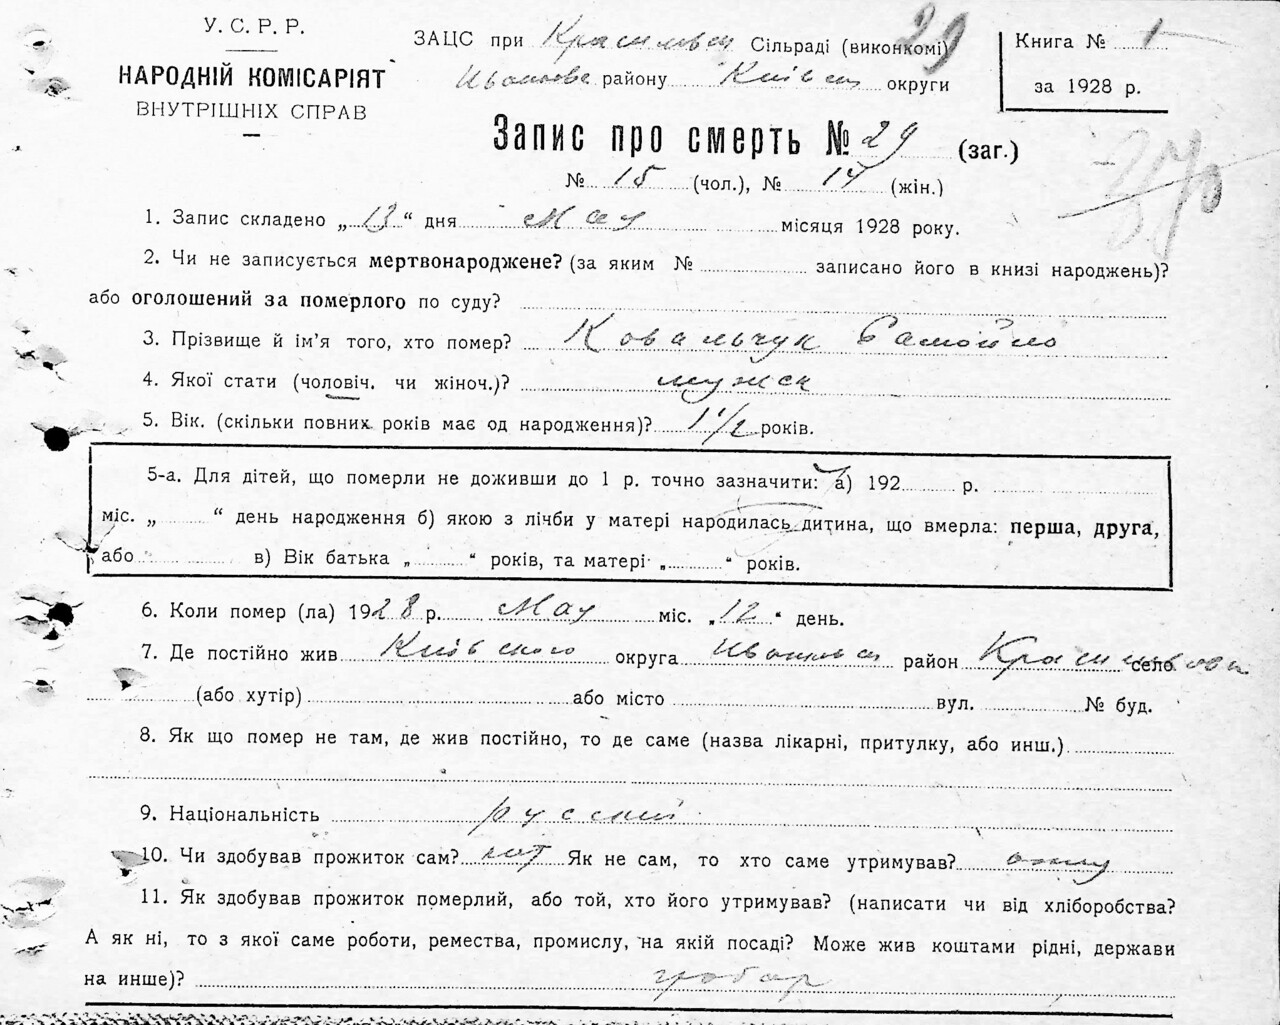 У. С. Р. Р.
НАРОДНІЙ КОМІСАРІЯТ
ВНУТРІШНІХ СПРАВ
ЗАЦС при Сільраді (виконкомі) 29
району округи
Книга № 1
за 1928 р.
Запис про смерть № 29 (заг.)
№ 15 (чол.), № 14 (жін.)
1. Запис складено „13“ дня Мая місяця 1928 року.
2. Чи не записується мертвонароджене? (за яким № записано його в книзі народжень)?
або оголошений за померлого по суду?
3. Прізвище й ім'я того, хто помер? Ковальчук Самойло
4. Якої стати (чоловіч. чи жіноч.)? мужск
5. Вік. (скільки повних років має од народження)? 1 1/2 років.
5-а. Для дітей, що померли не доживши до 1 р. точно зазначити: а) 192 р.
міс. „ “ день народження б) якою з лічби у матері народилась дитина, що вмерла: перша, друга,
або в) Вік батька „ “ років, та матері „ “ років.
6. Коли помер (ла) 1928 р. Мая міс. „12“ день.
7. Де постійно жив Київского округа район село
(або хутір) або місто вул. № буд.
8. Як що помер не там, де жив постійно, то де саме (назва лікарні, притулку, або инш.)
9. Національність русский
10. Чи здобував прожиток сам? нет Як не сам, то хто саме утримував? отец
11. Як здобував прожиток померлий, або той, хто його утримував? (написати чи від хліборобства?
А як ні, то з якої саме роботи, ремества, промислу, на якій посаді? Може жив коштами рідні, держави
на инше)?